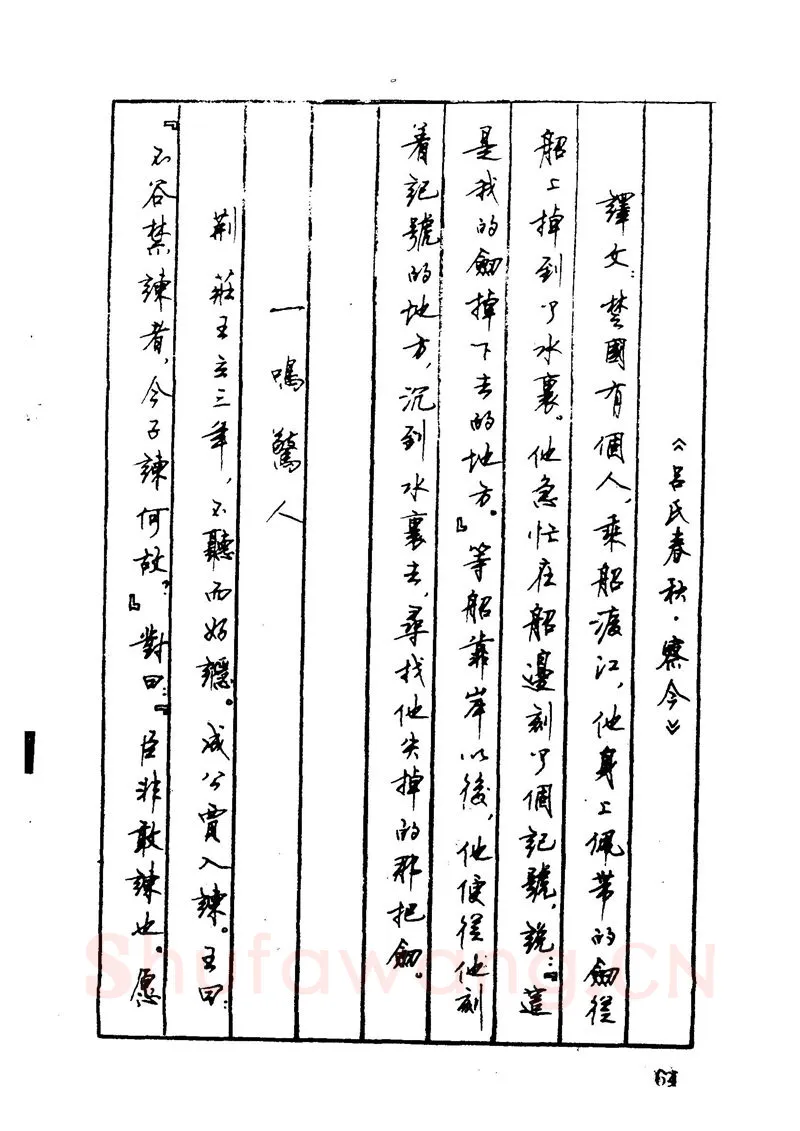 《吕氏春秋·察今》
譯文：楚國有個人，乘船渡江，他身上佩带的劍從
船上掉到了水裏。他急忙在船邊刻了個記號，說：『這
是我的劍掉下去的地方。』等船靠岸以後，他便從他刻
着記號的地方，沉到水裏去，尋找他失掉的那把劍。
一鳴驚人
荆莊王立三年，不聽而好讔。成公賈入諫。王曰：
『不谷禁諫者，今子諫何故？』對曰：『臣非敢諫也。愿
Shufawang.CN